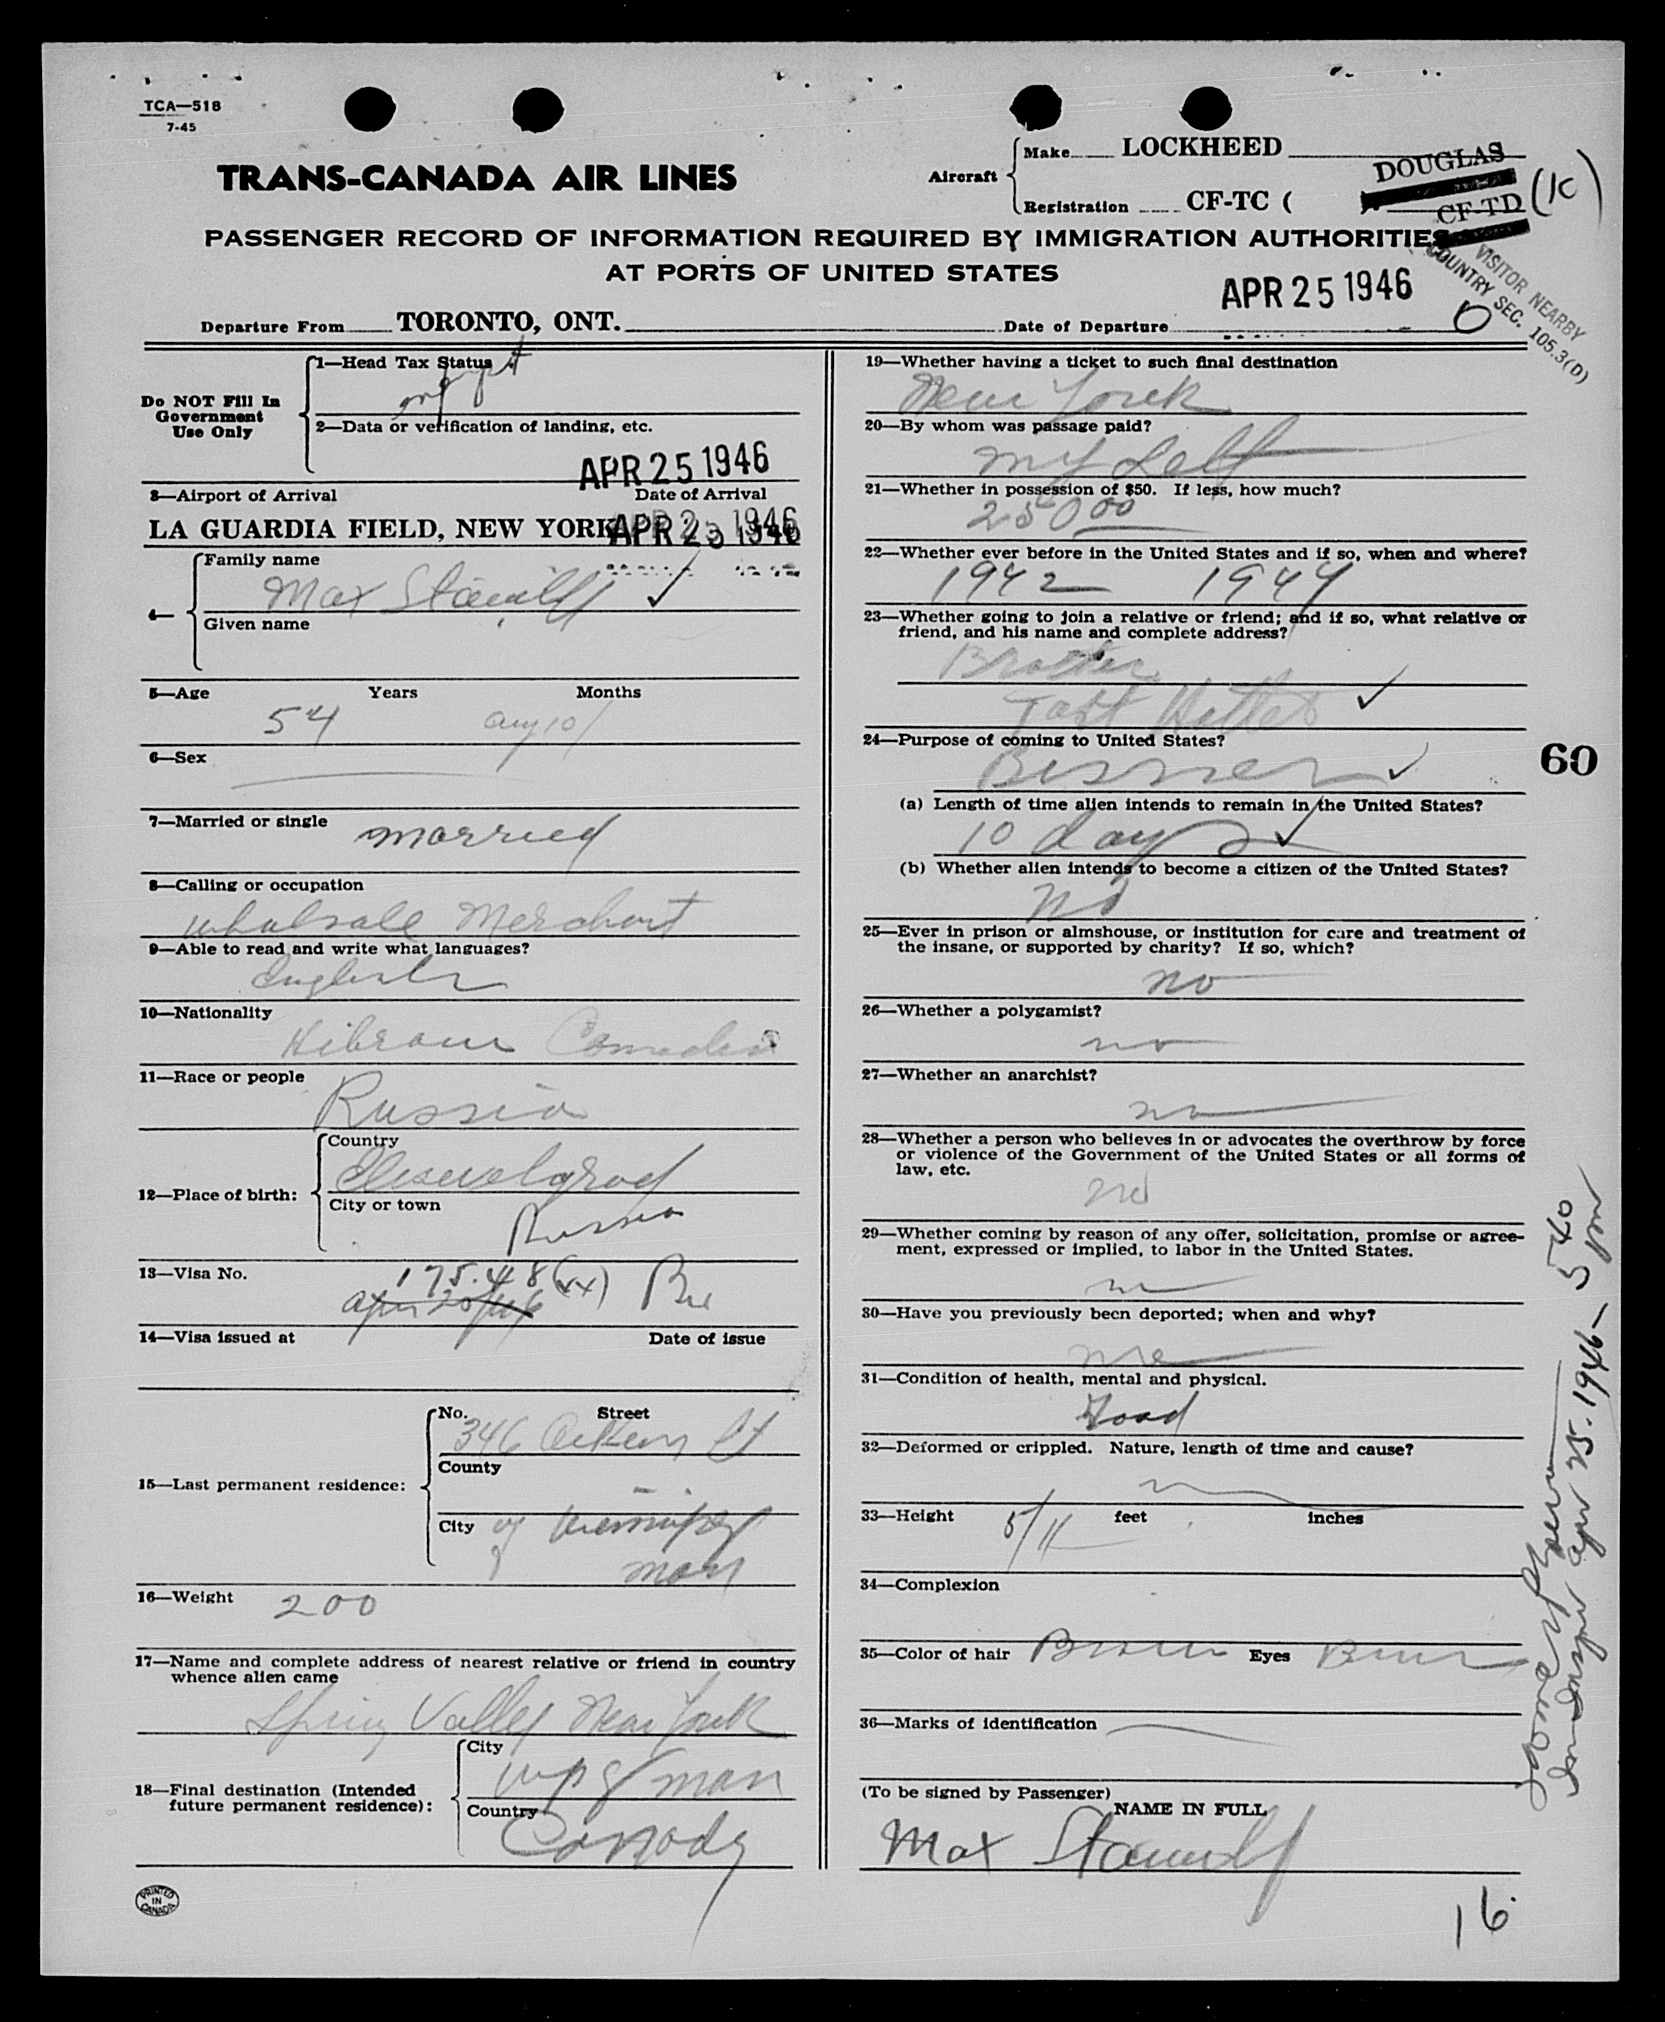 TCA—518
7-45
TRANS-CANADA AIR LINES
Aircraft
Make LOCKHEED
DOUGLAS
Registration CF-TC (
CF-TD (K)
PASSENGER RECORD OF INFORMATION REQUIRED BY IMMIGRATION AUTHORITIES
AT PORTS OF UNITED STATES
VISITOR NEARBY
COUNTRY SEC. 105.3(D)
APR 25 1946
Departure From TORONTO, ONT. Date of Departure
Do NOT Fill In
Government
Use Only
1—Head Tax Status
2—Data or verification of landing, etc.
APR 25 1946
3—Airport of Arrival Date of Arrival
LA GUARDIA FIELD, NEW YORK APR 25 1946
4—
Family name
Max
Given name
5—Age Years Months
54
6—Sex
7—Married or single
married
8—Calling or occupation
Wholsale Merchant
9—Able to read and write what languages?
English
10—Nationality
11—Race or people
Russia
12—Place of birth:
Country
City or town
Russia
13—Visa No.
175.48 (xx)
14—Visa issued at Date of issue
15—Last permanent residence:
No. Street
346 St
County
City
Winnipeg
Man
16—Weight
200
17—Name and complete address of nearest relative or friend in country
whence alien came
Spring Valley New York
18—Final destination (Intended
future permanent residence):
City
Wpg Man
Country
Canada
PRINTED
IN
CANADA
19—Whether having a ticket to such final destination
New York
20—By whom was passage paid?
My Self
21—Whether in possession of $50. If less, how much?
250 00
22—Whether ever before in the United States and if so, when and where?
1942 1944
23—Whether going to join a relative or friend; and if so, what relative or
friend, and his name and complete address?
Brother
24—Purpose of coming to United States?
(a) Length of time alien intends to remain in the United States?
10 days
(b) Whether alien intends to become a citizen of the United States?
No
25—Ever in prison or almshouse, or institution for care and treatment of
the insane, or supported by charity? If so, which?
no
26—Whether a polygamist?
no
27—Whether an anarchist?
no
28—Whether a person who believes in or advocates the overthrow by force
or violence of the Government of the United States or all forms of
law, etc.
no
29—Whether coming by reason of any offer, solicitation, promise or agree-
ment, expressed or implied, to labor in the United States.
no
30—Have you previously been deported; when and why?
31—Condition of health, mental and physical.
Good
32—Deformed or crippled. Nature, length of time and cause?
33—Height feet inches
5/11
34—Complexion
35—Color of hair Brown Eyes Brown
36—Marks of identification
(To be signed by Passenger)
NAME IN FULL
Max
60
Apr 25. 1946— 540
pm
16.